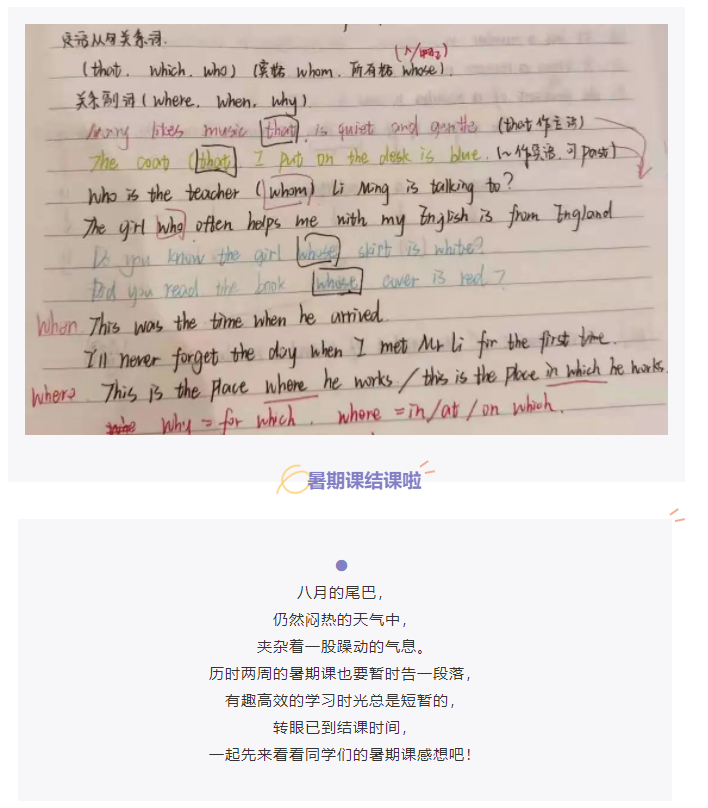 定语从句关系词.
(人/物)
(that, which, who) (宾格 whom, 所有格 whose).
关系副词 (where, when, why)
Many likes music that is quiet and gentle (that作主语)
The coat (that) I put on the desk is blue. (~作宾语, 可
Who is the teacher (whom) Li Ming is talking to?
The girl who often helps me with my English is from England
Do you know the girl whose skirt is white?
Did you read the book whose cover is red?
When This was the time when he arrived.
I'll never forget the day when I met Mr Li for the first time.
Where This is the place where he works / this is the place in which he works.
why = for which. where = in/at/on which.
暑期课结课啦
八月的尾巴，
仍然闷热的天气中，
夹杂着一股躁动的气息。
历时两周的暑期课也要暂时告一段落，
有趣高效的学习时光总是短暂的，
转眼已到结课时间，
一起先来看看同学们的暑期课感想吧！